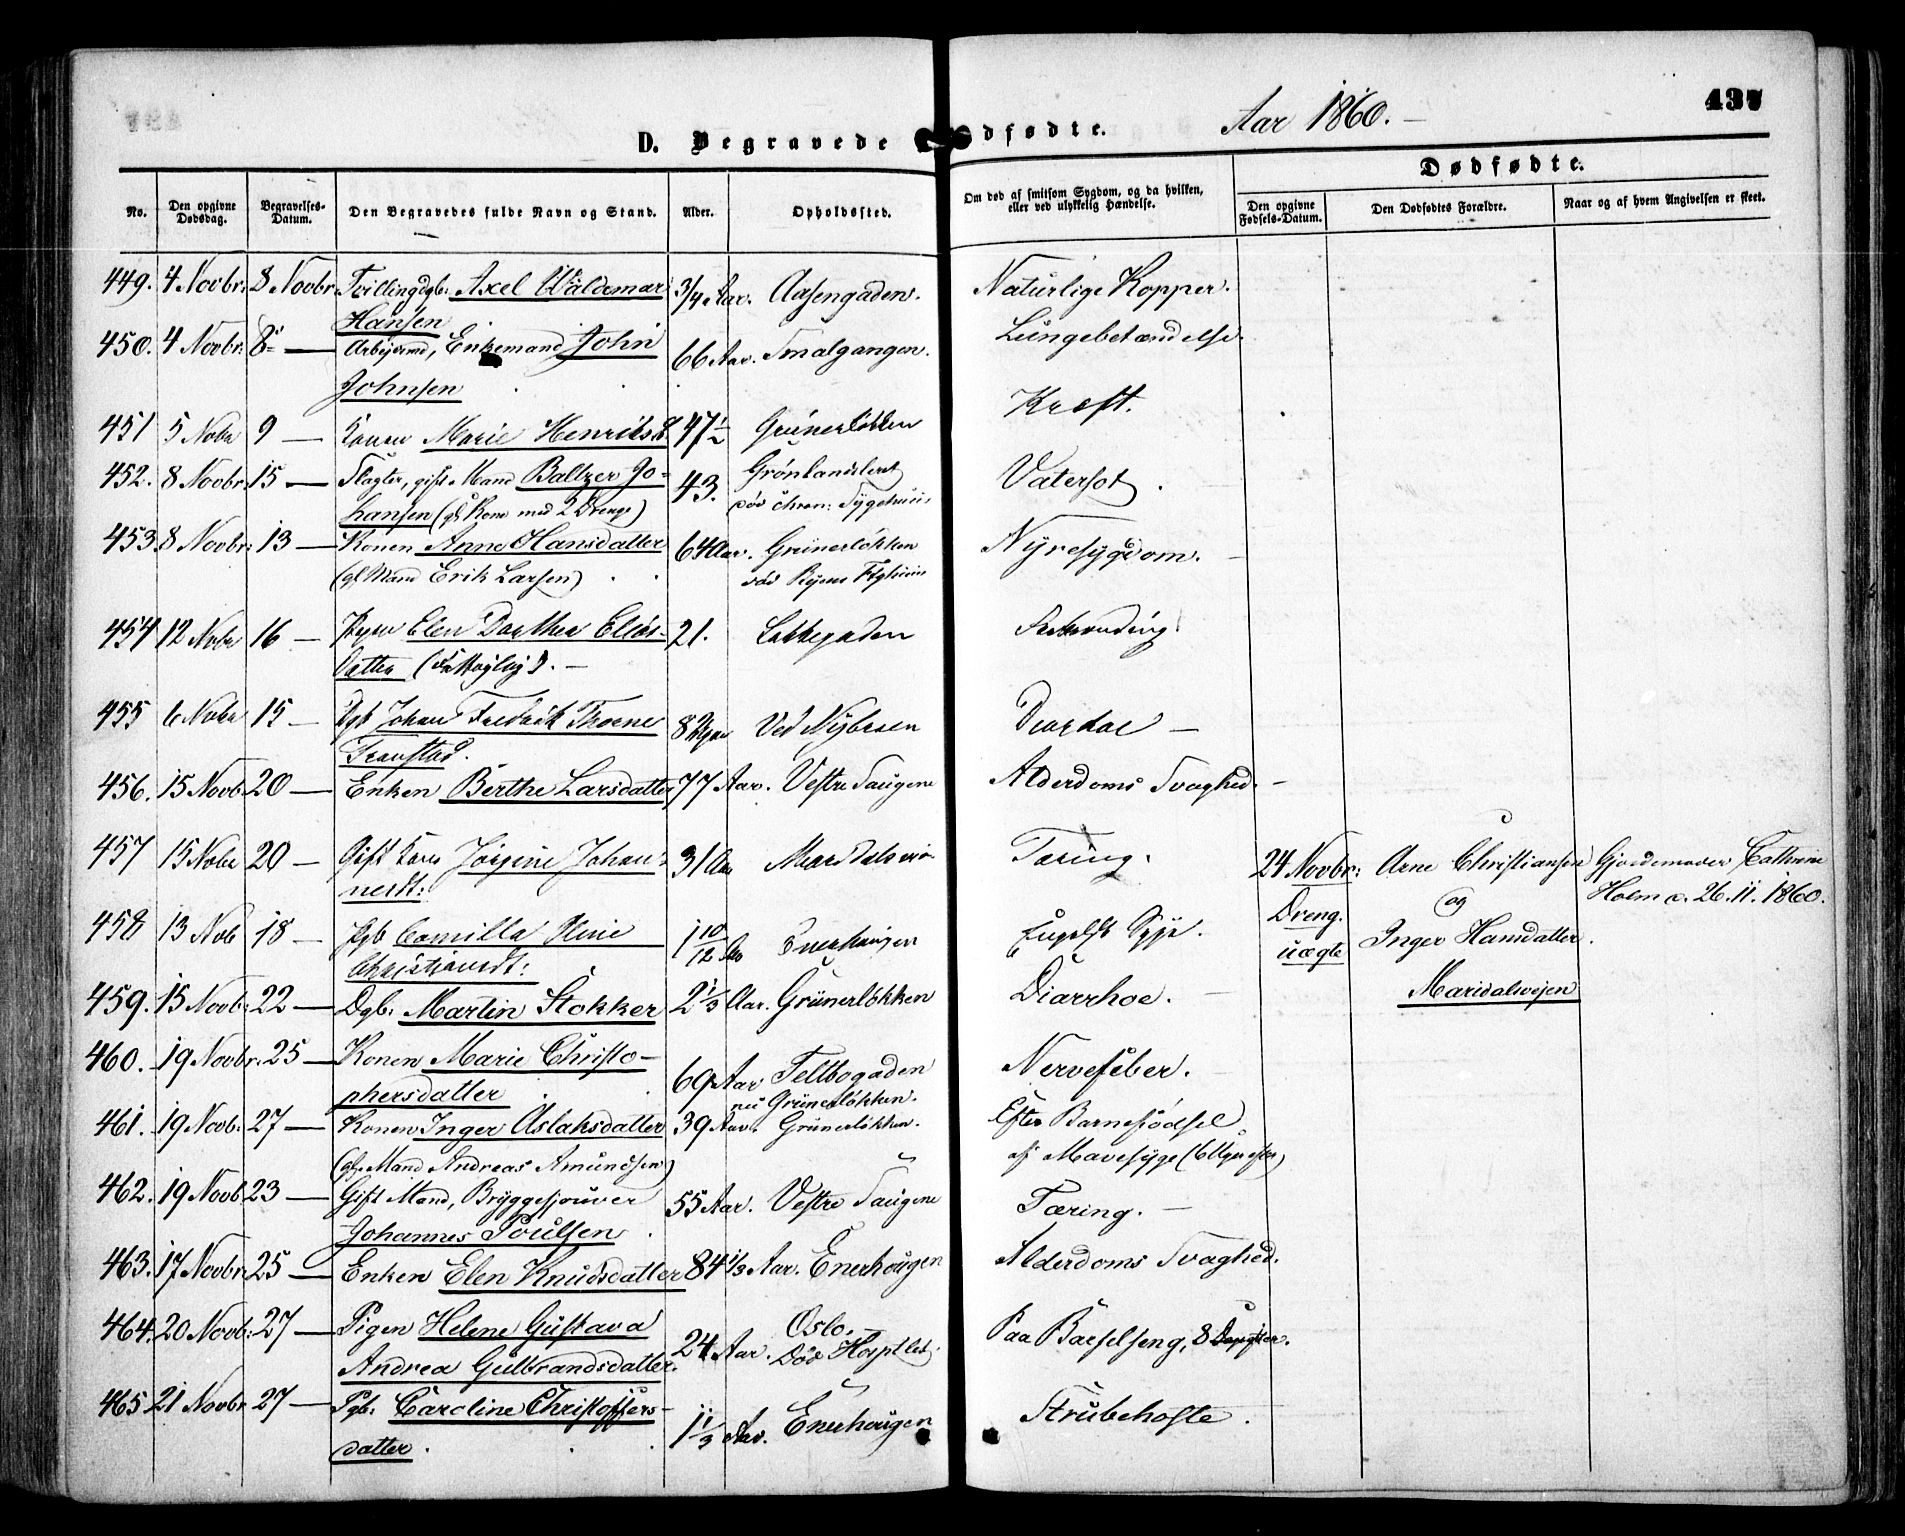 Aar 1860.
437
D. Begravede dfødte.
Dødfødte.
No.
Den opgivne Dødsdag.
Begravelses-Datum.
Den Begravedes fulde Navn og Stand.
Alder.
Opholdssted.
Om død af smitsom Sygdom, og da hvilken, eller ved ulykkelig Hændelse.
Den opgivne Fødsels-Datum.
Den Dødfødtes Forældre.
Naar og af hvem Angivelsen er skeet.
449. 4 Novbr: 8 Novbr Tvillingdgb: Axel Waldemar 3/4 Aar. Aasengaden. Naturlige Kopper.
Hansen
450. 4 Novbr: 8 — Arbejdsmd, Enkemand John 66 Aar. Smalgangen. Lungebetændelse.
Johnsen
451 5 Novbr 9 — Konen Marie Henriksd. 47 1/2 Grünerløkken Kræft.
452. 8 Novbr: 15 — Slagter, gift Mand Baltzer Jo- 43. Grønlandsleret Vatersot.
hansen (gl Kone med 2 Drenge) død
453 8 Novbr: 13 — Konen Anne Hansdatter 64 Aar. Grünerløkken Nyresygdom. —
(gl. Mand Erik Larsen) død Byens Sygehuus
454 12 Novbr 16 — Pigen Elen Dorthea Elias- 21. Lakkegaden
datter
455 6 Novbr 15 — Dgb Johan Fredrik Thorne 8 Uger Ved Nybroen Diarrhoe —
456. 15 Novb. 20 — Enken Berthe Larsdatter 77 Aar. Vestre Haugene Alderdoms Svaghed. —
457 15 Novbr 20 — Gift Kone Jørgine Johan- 31 Aar Maridalsveien Tæring. 24 Novbr: Arne Christiansen Gjordemoder Cathrine
nesdt: Dreng. og Holm d. 26.11.1860.
458 13 Nob 18 — Pgb Camilla Oline 1 10/12 Aar Enerhaugen Engelsk Syge. uægte Inger Hansdatter.
Christiansdt:
459. 15 Novb: 22 — Dgb: Martin Stokker 2 1/3 Aar. Grünerløkken Diarrhoe. — Maridalsvejen
460. 19 Novbr. 25 — Konen Marie Christo- 69 Aar Teltbogaden Nervefeber. —
phersdatter nu Grünerløkken.
461. 19 Novb: 27 — Konen Inger Aslaksdatter 39 Aar. Grünerløkken. Efter Barnefødsel
(gl. Mand Andreas Amundsen) af Mavesyge
462. 19 Novb. 23 — Gift Mand, Bryggesjouer 55 Aar. Vestre Haugene Tæring. —
Johannes Poulsen
463. 17 Novbr. 25 — Enken Elen Knudsdatter 84 1/3 Aar. Enerhougen Alderdoms Svaghed.
464. 20 Novb: 27 — Pigen Helene Gustava 24 Aar. Oslo. — Paa Barselseng, 8 Dage
Andrea Gulbrandsdatter. Død Hospitlet.
465 21 Novbr 27 — Pgb: Caroline Christoffers- 1 1/3 Aar. Enerhougen Strubehoste.
datter.